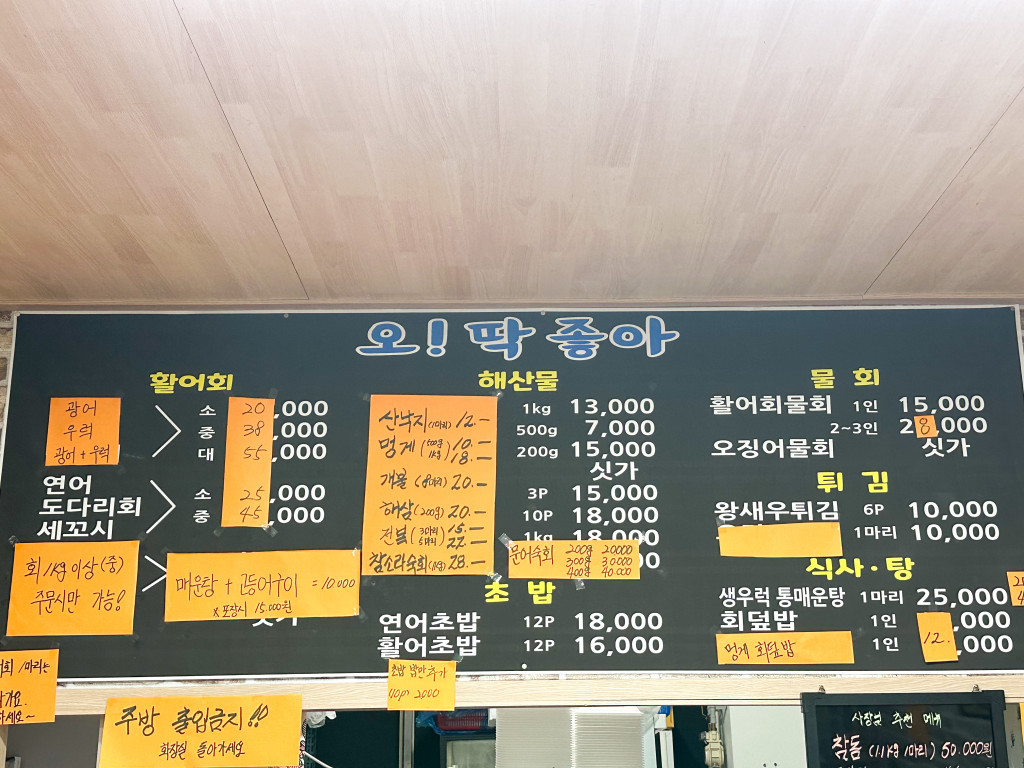 오! 딱 좋아
활어회
광어
우럭
광어+우럭
소 20,000
중 38,000
대 55,000
연어
도다리회
세꼬시
소 25,000
중 45,000
회 1kg 이상 (중)
주문시만 가능!
매운탕 + 고등어구이 = 10,000
x 포장시 15,000원
해산물
산낙지(1마리) 12.-
멍게 (500g 10.-
1kg 18.-
개불 (8마리) 20.-
해삼(200g) 20.-
전복 (3마리 15.-
5마리 22.-
참소라숙회(1kg) 28.-
1kg 13,000
500g 7,000
200g 15,000
싯가
3P 15,000
10P 18,000
1kg 18,000
문어숙회 200g 20000
300g 30000
400g 40.000
초밥
연어초밥 12P 18,000
활어초밥 12P 16,000
초밥 밥만 추가
10p 2000
물회
활어회물회 1인 15,000
2~3인 28,000
오징어물회 싯가
튀김
왕새우튀김 6P 10,000
1마리 10,000
식사·탕
생우럭 통매운탕 1마리 25,000
회덮밥 1인 12.,000
멍게 회덮밥 1인 ,000
1마리는
주방 출입금지!!
화장실 돌아가세요
사장님 추천 메뉴
참돔 (1.1kg 1마리) 50.000원